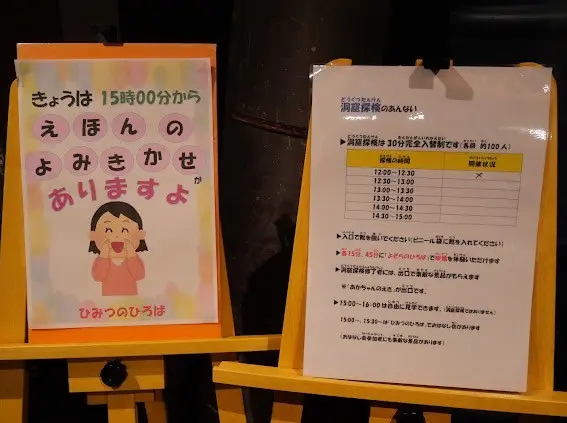 きょうは 15時00分から
えほんの
よみきかせ
が
ありますよ
ひみつのひろば
洞窟探検のあんない
▶洞窟探検は30分完全入替制です(各回 約100人)
探検の時間 開催状況
12:00～12:30 ×
12:30～13:00
13:00～13:30
13:30～14:00
14:00～14:30
14:30～15:00
▶入口で靴を脱いでください(ビニール袋に靴を入れてください)
▶各15分、45分に「よぞらのひろば」で
を体験いただけます
▶洞窟探検修了者には、出口で素敵な景品がもらえます
※「あかちゃんのえき」が出口です。
▶15:00～16:00は自由に見学できます。(洞窟探検ではありません)
15:00～、15:30～は「ひみつのひろば」でおはなし会があります
(おはなし会参加者にも素敵な景品があります)